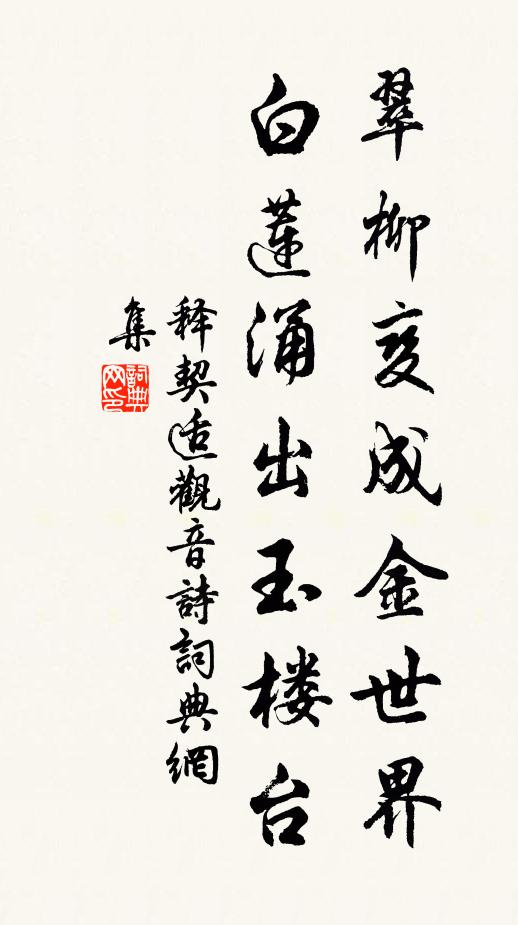 翠柳变成金世界
白莲涌出玉楼台
释契适觀音詩詞典網
集
詞典網印